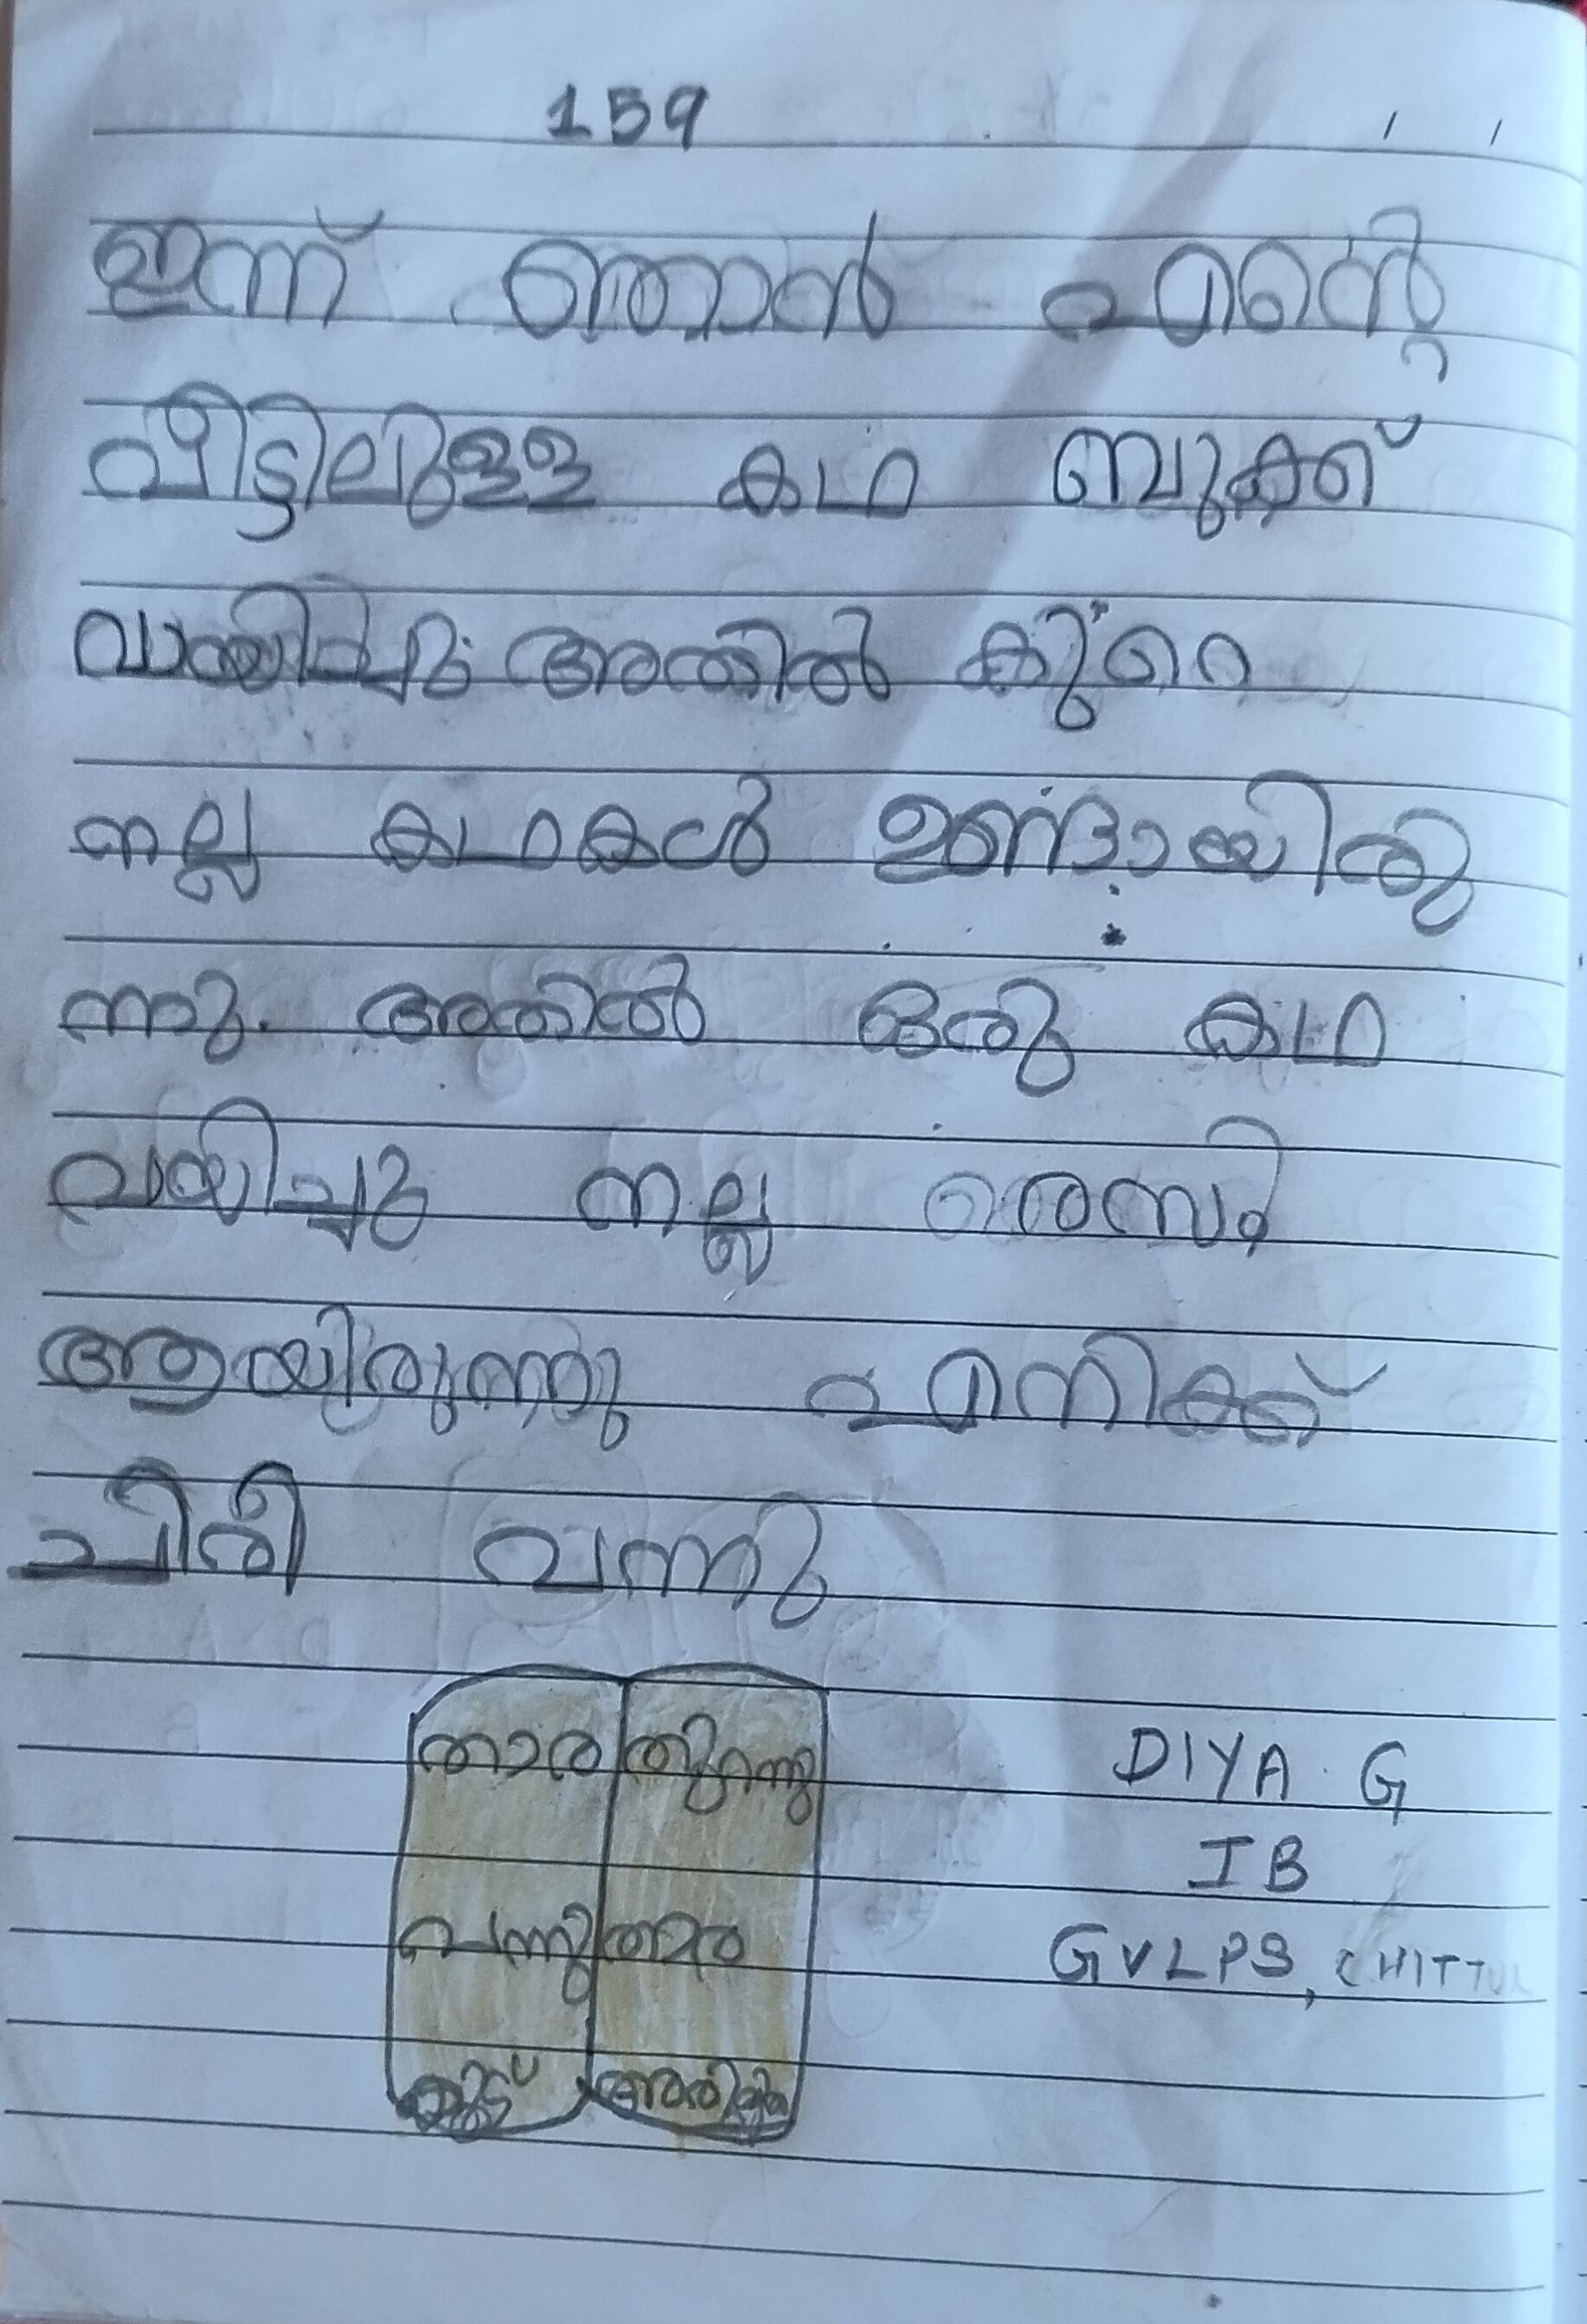 159
ഇന്ന് ഞാൻ എന്റെ
വീട്ടിലുള്ള കഥ ബുക്ക്
വായിച്ചു. അതിൽ കുറെ
നല്ല കഥകൾ ഉണ്ടായിരു
ന്നു. അതിൽ ഒരു കഥ
വയിച്ചു നല്ല രസം
ആയിരുന്നു എനിക്ക്
ചിരി വന്നു
താര
പന്നു താര
DIYA. G
I B
GVLPS, CHITTUR